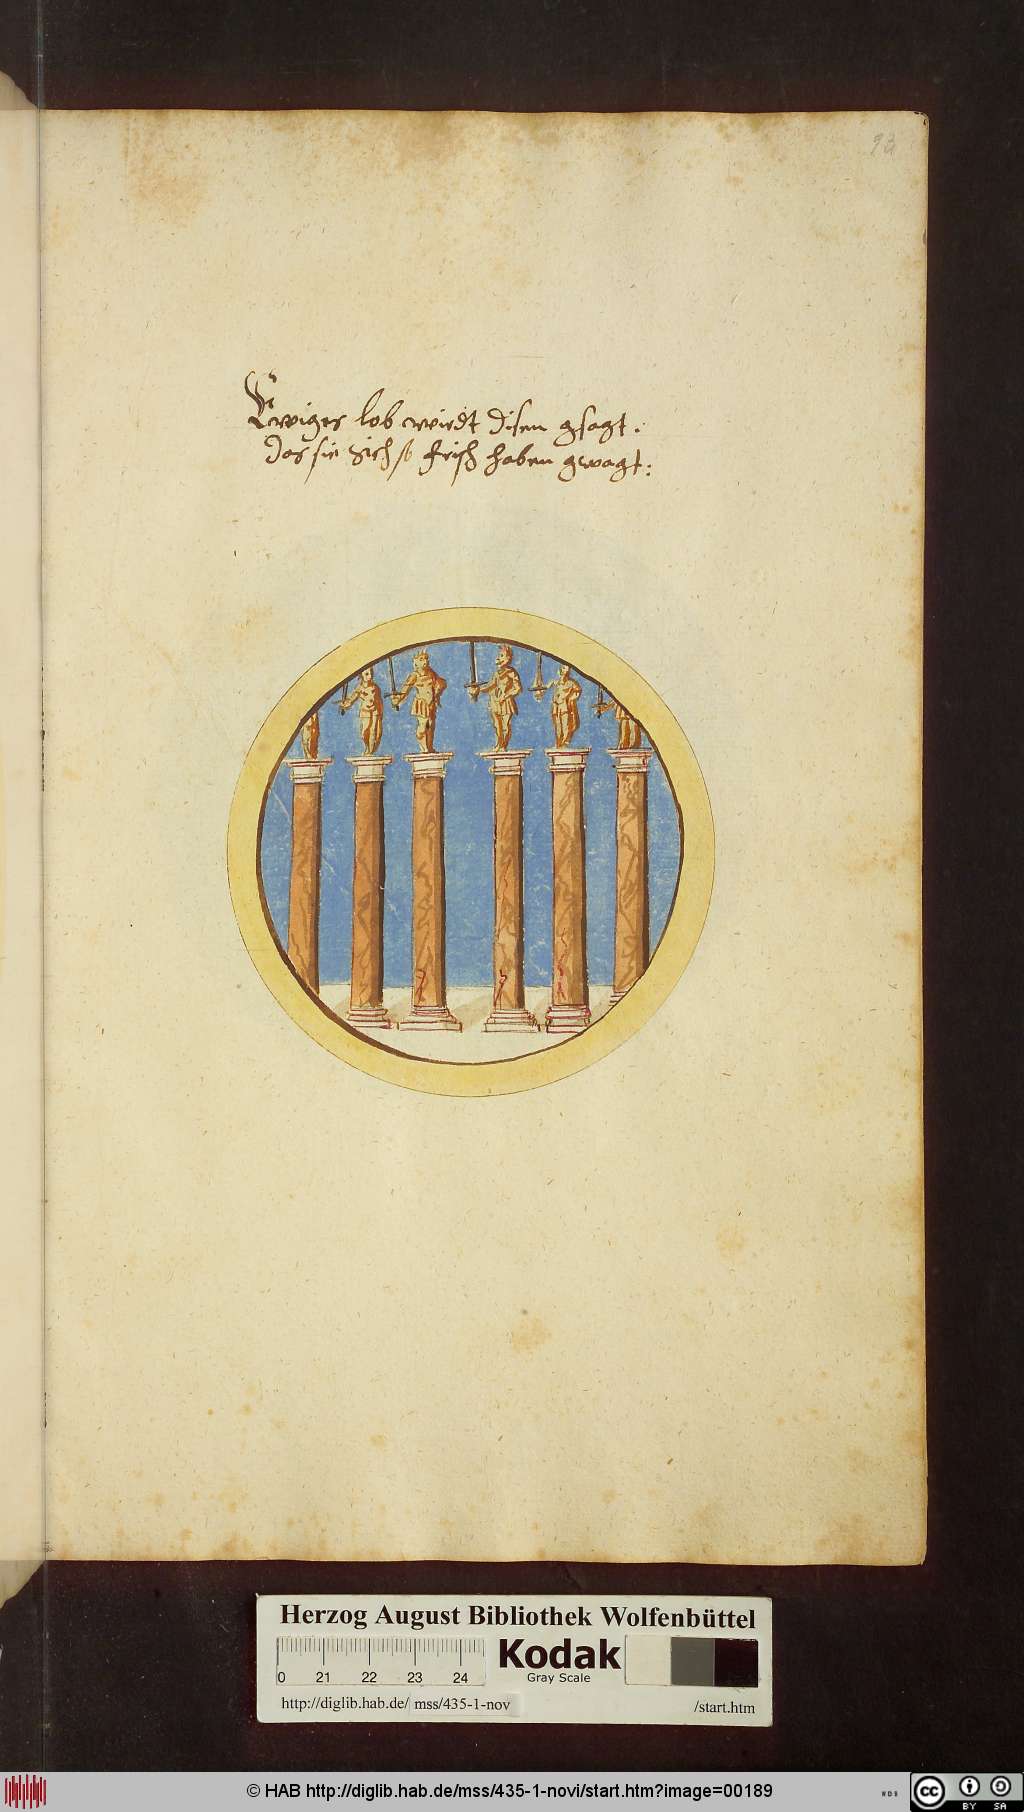 92
Ewiges lob wirdt disen gsagt.
Das sie sichß frisch haben gwagt:
Herzog August Bibliothek Wolfenbüttel
0 21 22 23 24
Kodak
Gray Scale
http://diglib.hab.de/ mss/435-1-nov /start.htm
© HAB http://diglib.hab.de/mss/435-1-novi/start.htm?image=00189
cc BY SA